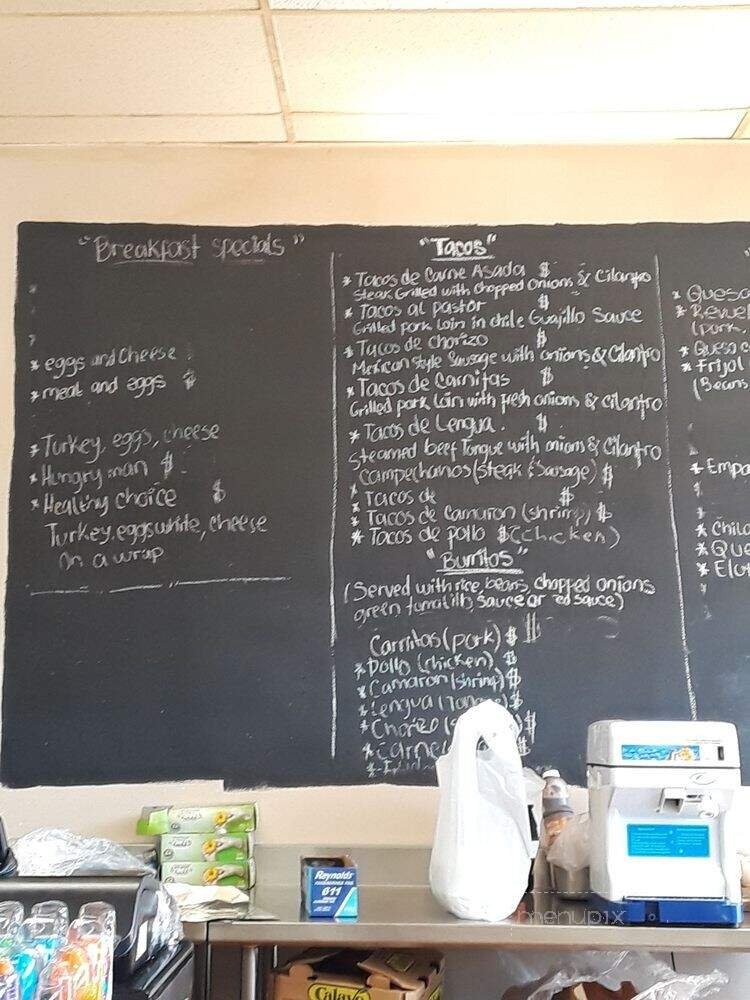 "Breakfast specials"
* eggs and cheese
* meat and eggs $
* Turkey, eggs, cheese
* Hungry man $
* Healthy choice $
Turkey, eggs white, cheese
on a wrap
"Tacos"
* Tacos de Carne Asada $
Steak Grilled with chopped onions & Cilantro
* Tacos al pastor $
Grilled pork loin in chile Guajillo Sauce
* Tacos de chorizo $
Mexican style Sausage with onions & Cilantro
* Tacos de Carnitas $
Grilled pork loin with fresh onions & cilantro
* Tacos de Lengua. $
Steamed beef Tongue with onions & Cilantro
Campechanos (steak & Sausage) $
* Tacos de $
* Tacos de Camaron (shrimp) $
* Tacos de pollo $ (chicken)
"Burritos"
(Served with rice, beans, chopped onions
green tomatillo sauce or red sauce)
$
Carnitas (pork) $
* Pollo (chicken) $
* Camaron (shrimp) $
* Lengua (Tongue) $
* Chorizo (S $
* Carne $
* Queso
* Revuel
(pork,
* Queso c
* Frijol
(Beans
* Empa
* Chila
* Que
* Elot
Reynolds
611
Calavo
menupix